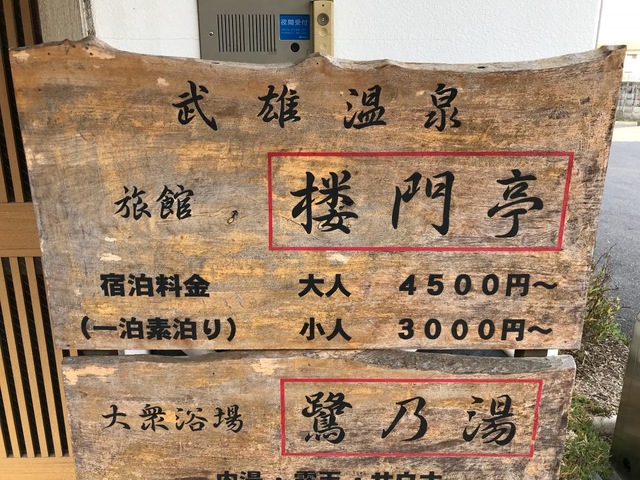 夜間受付
武雄温泉
旅館 楼門亭
宿泊料金 大人 4500円～
(一泊素泊り) 小人 3000円～
大衆浴場 鷺乃湯
内湯・露天・サウナ